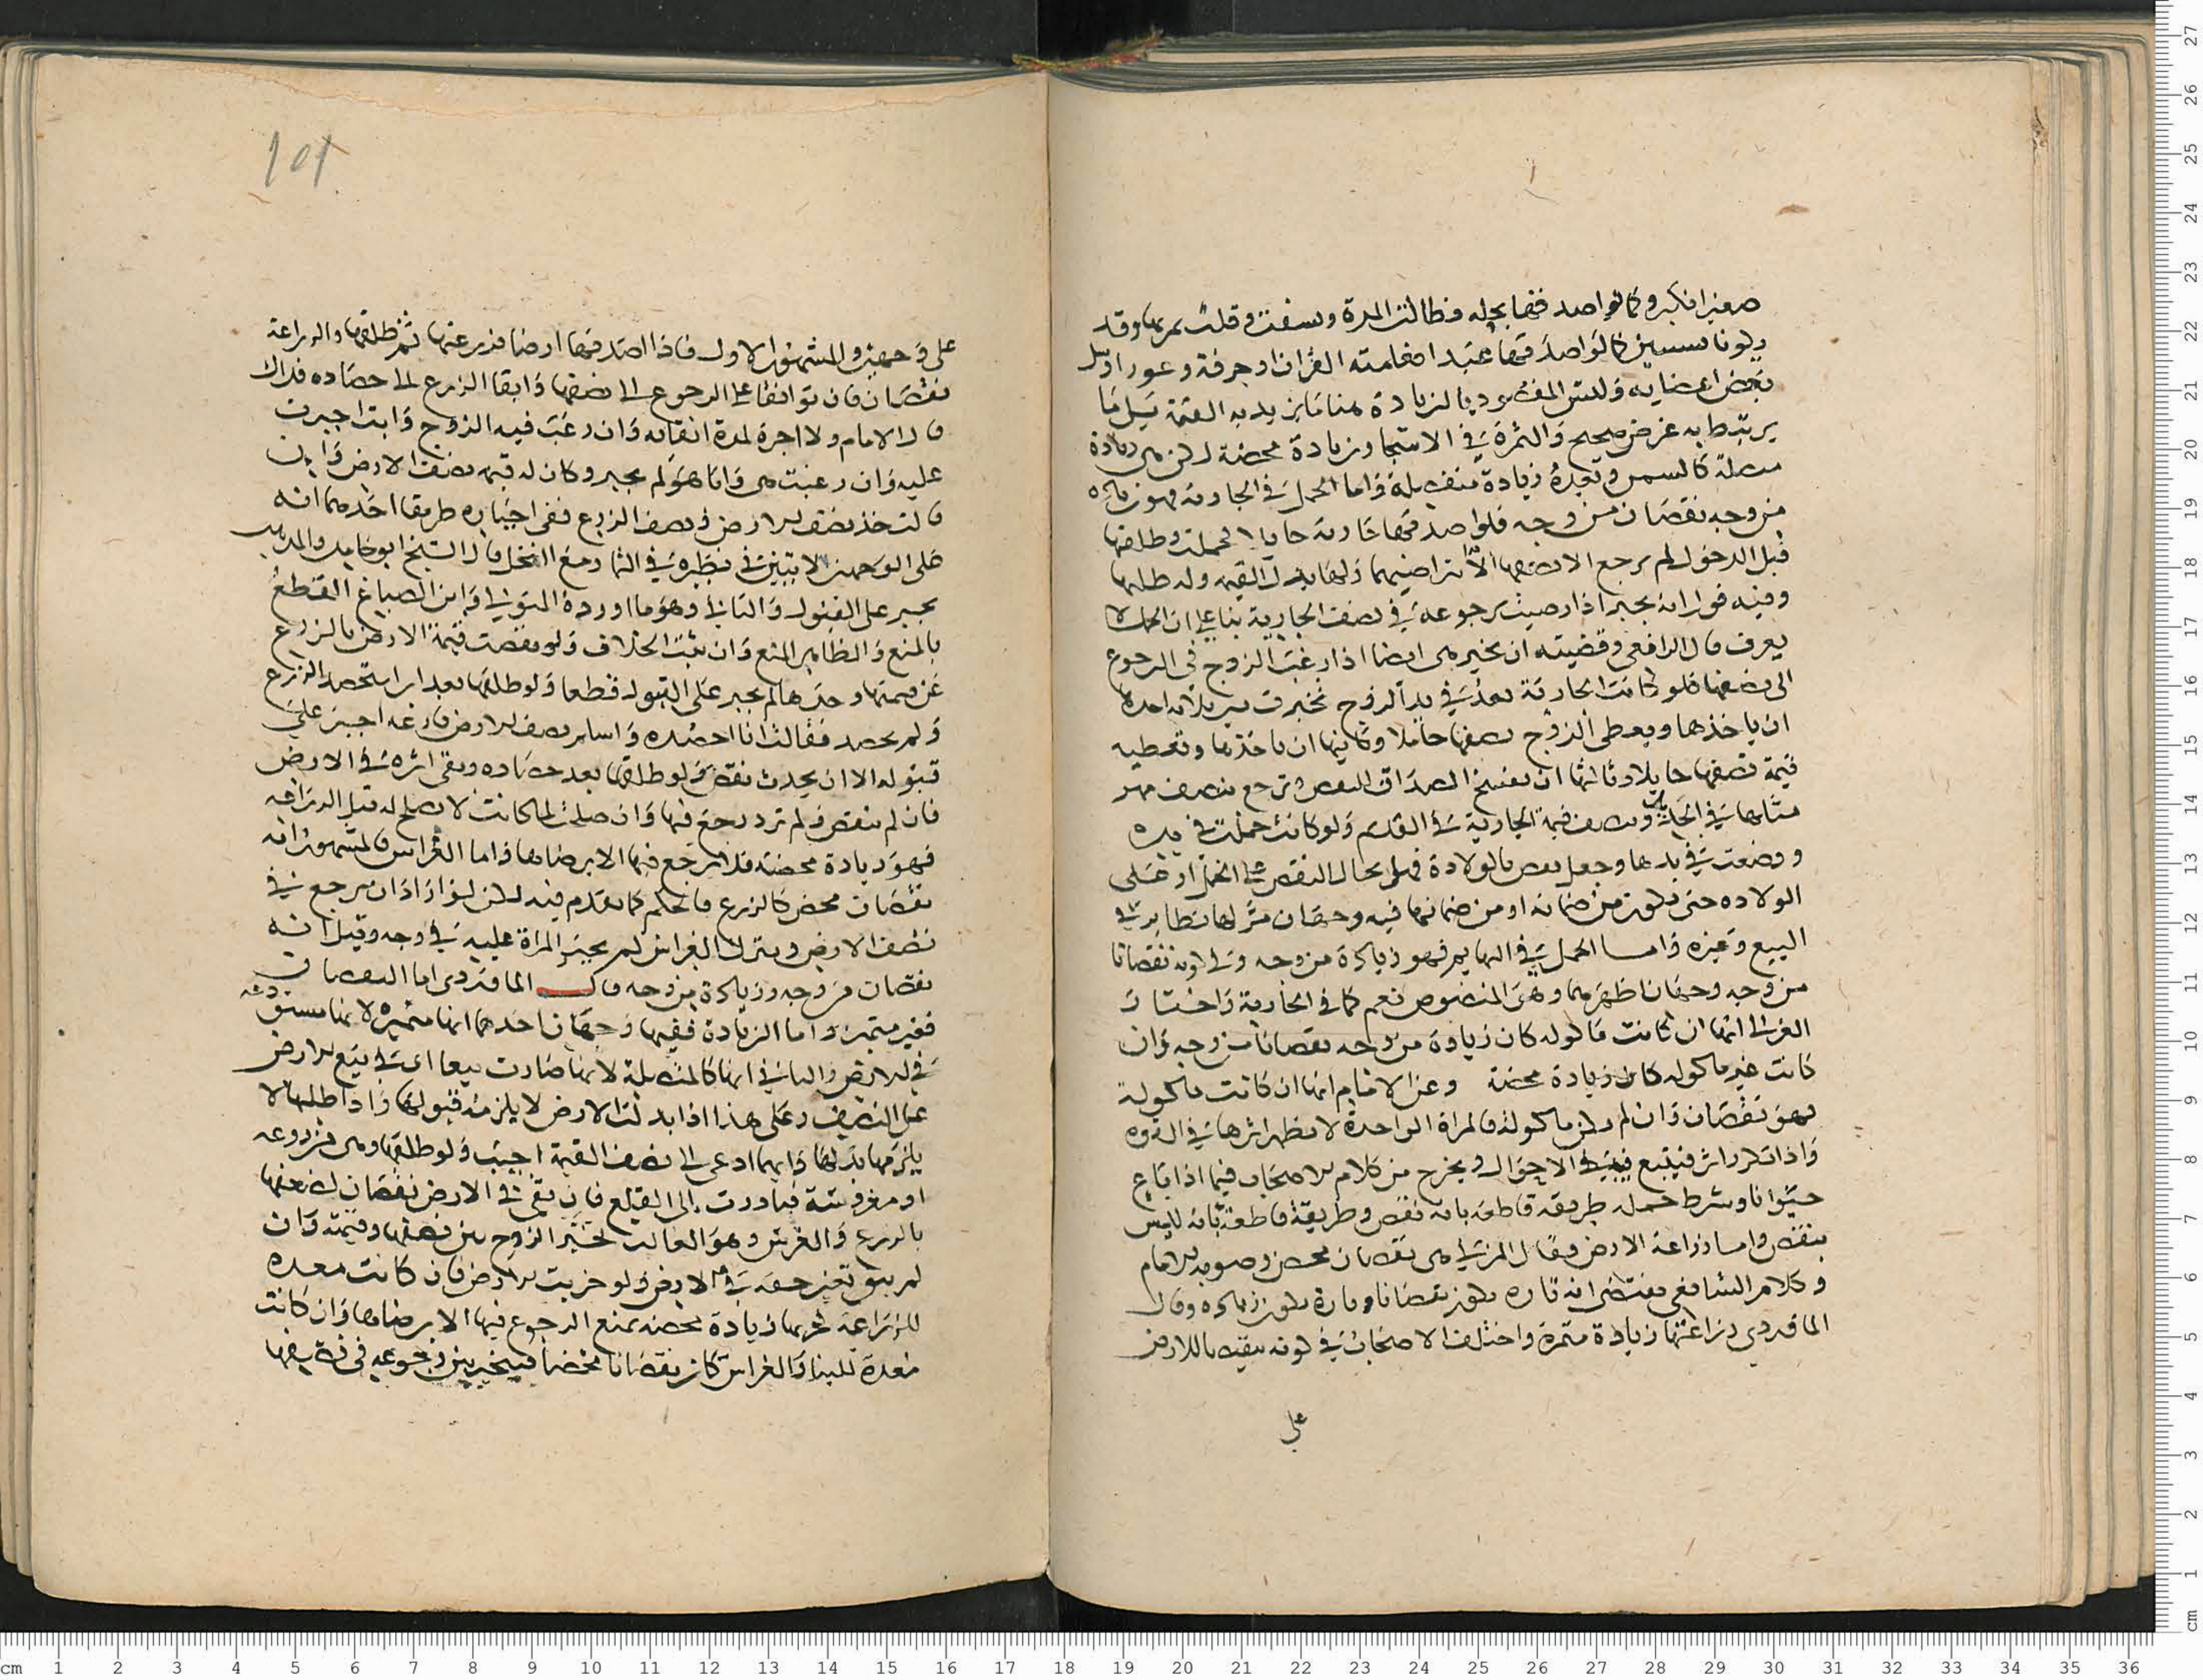 صغيرا فكبر وكما لو اصدقها نخله فطالت المدة وبسقت وقلت ثمرتها وقد
يكونا سببين كما لو اصدقها عبدا فعلمته القران او حرفة وعور او شل
بعض اعضايه وليس المقصود بالزيادة هنا ما يزيد به القيمة بل ما
يرتبط به غرض صحيح والثمرة في الاشجار زيادة محضة لكن هي زيادة
متصلة كالسمن وبعده زيادة منفصلة واما الحمل في الجارية فهو زيادة
من وجه نقصان من وجه فلو اصدقها جارية حايلا فحملت وطلقها
قبل الدخول لم يرجع الى نصفها الا بتراضيهما ولها بدل القيمة وله طلبها
وفيه قول انه يجبر اذا رضيت برجوعه في نصف الجارية بنا على ان الحمل لا
يعرف قال الرافعي وقضيته ان تخير هي ايضا اذا رغب الزوج في الرجوع
الى نصفها فلو كانت الجارية بعد في يد الزوج تخيرت بين ثلاثة احدها
ان ياخذها ويعطي الزوج نصفها حاملا وثانيها ان ياخذها وتعطيه
قيمة نصفها حايلا وثالثها ان تفسخ الصداق للنقص وترجع بنصف مهر
مثلها في الجديد وبنصف قيمة الجارية في القديم ولو كانت حملت في يده
ووضعت في يدها وحصل نقص بالولادة فهل يحال النقص على الحمل او على
الولاده حتى يكون من ضمانه او من ضمانها فيه وجهان مر لها نظاير في
البيع وغيره واما الحمل في البهايم فهو زيادة من وجه وفي كونه نقصانا
من وجه وجهان اظهرهما وهي المنصوص نعم كما في الجارية واختار
الغزالي انها ان كانت ماكوله كان زيادة من وجه نقصانا من وجه وان
كانت غير ماكوله كان زيادة محضة وعن الامام انها ان كانت ماكولة
فهو نقصان وان لم يكن ماكولة فالمراة الواحدة لا يظهر اثرها في القوه
واذا تكررت اثر فيتبع فيه الاحوال ويخرج من كلام الاصحاب فيما اذا باع
حيوانا وشرط حمله طريقة قاطعة بانه نقص وطريقة قاطعة بانه ليس
بنقص واما زراعة الارض فقال المزني هي نقصان محض وصوبه الامام
وكلام الشافعي مقتضى انه تارة يكون نقصانا وتارة يكون زيادة وقال
الماوردي زراعتها زيادة متميزة واختلف الاصحاب في كونه نقصا للارض
على
101
على وجهين والمشهور الاول فاذا اصدقها ارضا فزرعتها ثم طلقها والزراعة
نقصان فان توافقا على الرجوع الى نصفها وابقا الزرع الى حصاده فذاك
قال الامام ولا اجرة لمدة ابقائه وان رغب فيه الزوج وابت اجبرت
عليه وان رغبت هي وابا هو لم يجبر وكان له قيمة نصف الارض وان
قالت خذ نصف الارض ونصف الزرع ففي اجباره طريقا احدهما انه
على الوجهين الاتيين في نظيره في الثمار مع النخل قال الشيخ ابو حامد والمذهب
يجبر على القبول والثاني وهو ما اورده المتولي وابن الصباغ القطع
بالمنع والظاهر المنع وان ثبت الخلاف ولو نقصت قيمة الارض بالزرع
عن قيمتها وحدها لم يجبر على القبول قطعا ولو طلقها بعد ان استحصد الزرع
ولم يحصد فقالت انا احصده واسلم نصف الارض فارغه اجبر على
قبوله الا ان يحدث نقص ولو طلقها بعد حصاده وبقي اثره في الارض
فان لم ينقص ولم ترد رجع فيها وان صلحت لما كانت لا تصلح له قبل الزراعه
فهو زيادة محضة فلا يرجع فيها الا برضاها واما الغراس فالمشهور انه
نقصان محض كالزرع فالحكم كما تقدم فيه لكن لو اراد ان يرجع في
نصف الارض ويترك الغراس لم يجبر المراة عليه في وجه وقيل انه
نقصان من وجه وزيادة من وجه قال الماوردي اما النقصان
فغير متميز واما الزيادة ففيها وجهان احدهما انها متميزه لانها مستودعه
في الارض والثاني انها كالمتصلة لانها صارت تبعا اي في بيع الارض
على النصف وعلى هذا اذا بذلت الارض لا يلزمه قبولها واذا طلبها لا
يلزمها بذلها وايهما ادعى الى نصف القيمة اجيب ولو طلقها وهي مزروعه
او مغروسة فبادرت الى القلع فان بقي في الارض نقصان لضعفها
بالزرع والغرس وهو الغالب تخير الزوج بين نصفها وقيمته وان
لم يبق تعين حقه في الارض ولو حرثت الارض فان كانت معده
للزراعة فحرثها زيادة محضه يمتنع الرجوع فيها الا برضاها وان كانت
معدة للبنا والغراس كان نقصانا محضا فيتخير بين رجوعه في نصفها